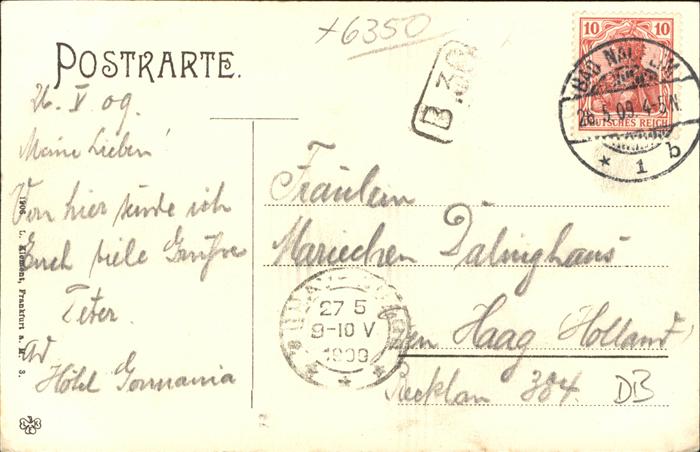 +6350
POSTKARTE.
26. V 09.
Meine Lieben!
Von hier sende ich
Euch viele Grüsse
Peter.
Hôtel Germania
1906 L. Klement, Frankfurt a. M. 3.
B 30
10
10
DEUTSCHES REICH
BAD NAUHEIM
26.5.09. 4-5 N.
* 1 b
Fräulein
Mariechen Dalinghaus
Den Haag (Holland)
304. DB
27 5
9-10 V
1909